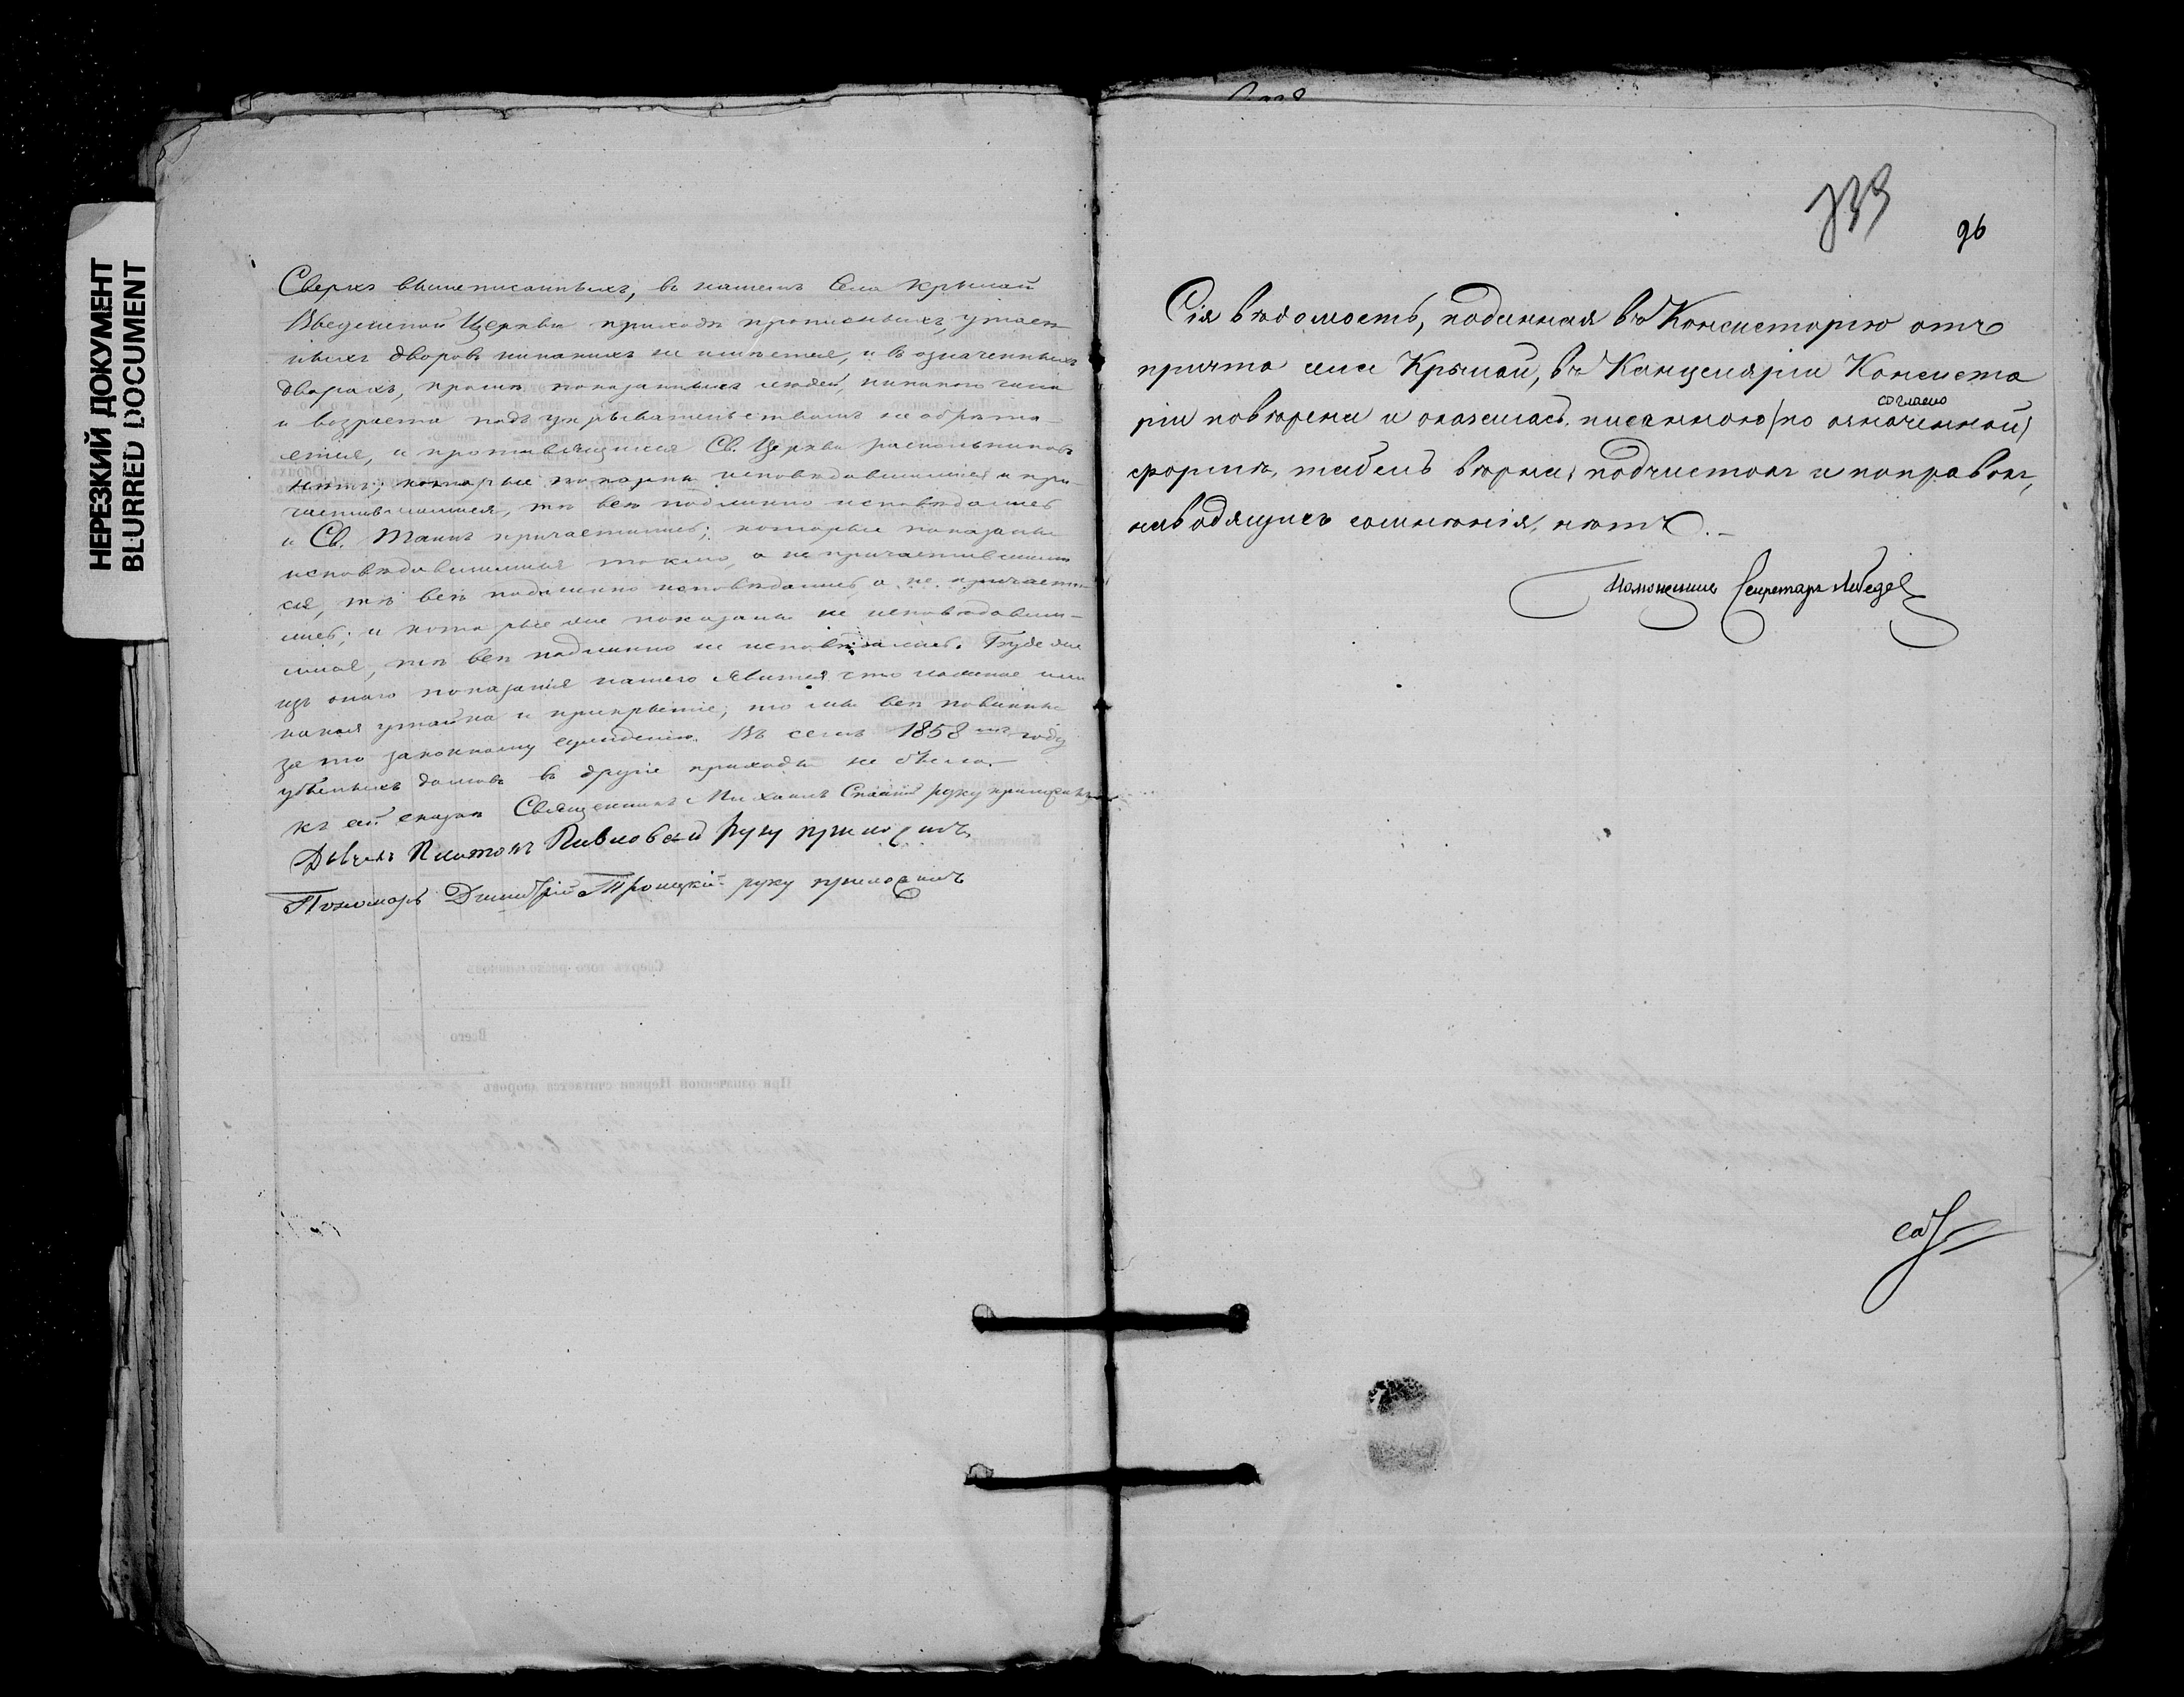 НЕРЕЗКИЙ ДОКУМЕНТ
BLURRED DOCUMENT
Сверхъ вышеписанныхъ, въ нашемъ Села Крымай
Введенской Церкви приходѣ прописныхъ, утаен-
ныхъ дворовъ никакихъ не имѣется, и въ означенныхъ
дворахъ, кромѣ показанныхъ людей, никакого чина
и возраста подъ укрывательствомъ не обрѣта-
ется, и противящихся Св. Церкви раскольниковъ
нѣтъ; которые показаны исповѣдавшимися и при-
частившимися, тѣ всѣ подлинно исповѣдались
и Св. Таинъ причастились; которые показаны
исповѣдавшимися токмо, а не причастившими-
ся, тѣ всѣ подлинно исповѣдались, а не причасти-
лись; и которые же показаны не исповѣдавши-
мися, тѣ всѣ подлинно не исповѣдались. Буде же
изъ онаго показанія нашего явится что ложное или
какая утайка и прикрытіе, то мы всѣ повинны
за то законному сужденію. Въ семъ 1858 мъ году
убылыхъ домовъ въ другіе приходы не было.
Къ сей сказкѣ Священникъ Михаилъ руку приложилъ
Дьячекъ Платонъ Павловскій руку приложилъ
Пономарь Димитрій Троицкій руку приложилъ
96
Сія вѣдомость, поданная въ Консисторію отъ
причта села Крымай, въ Канцеляріи Консисто
согласно
ріи повѣрена и оказалась писанною (по означенной)
формѣ, табель вѣрна, подчистокъ и поправокъ,
наводящихъ сомнѣнія, нѣтъ.
Секретарь Лебедев